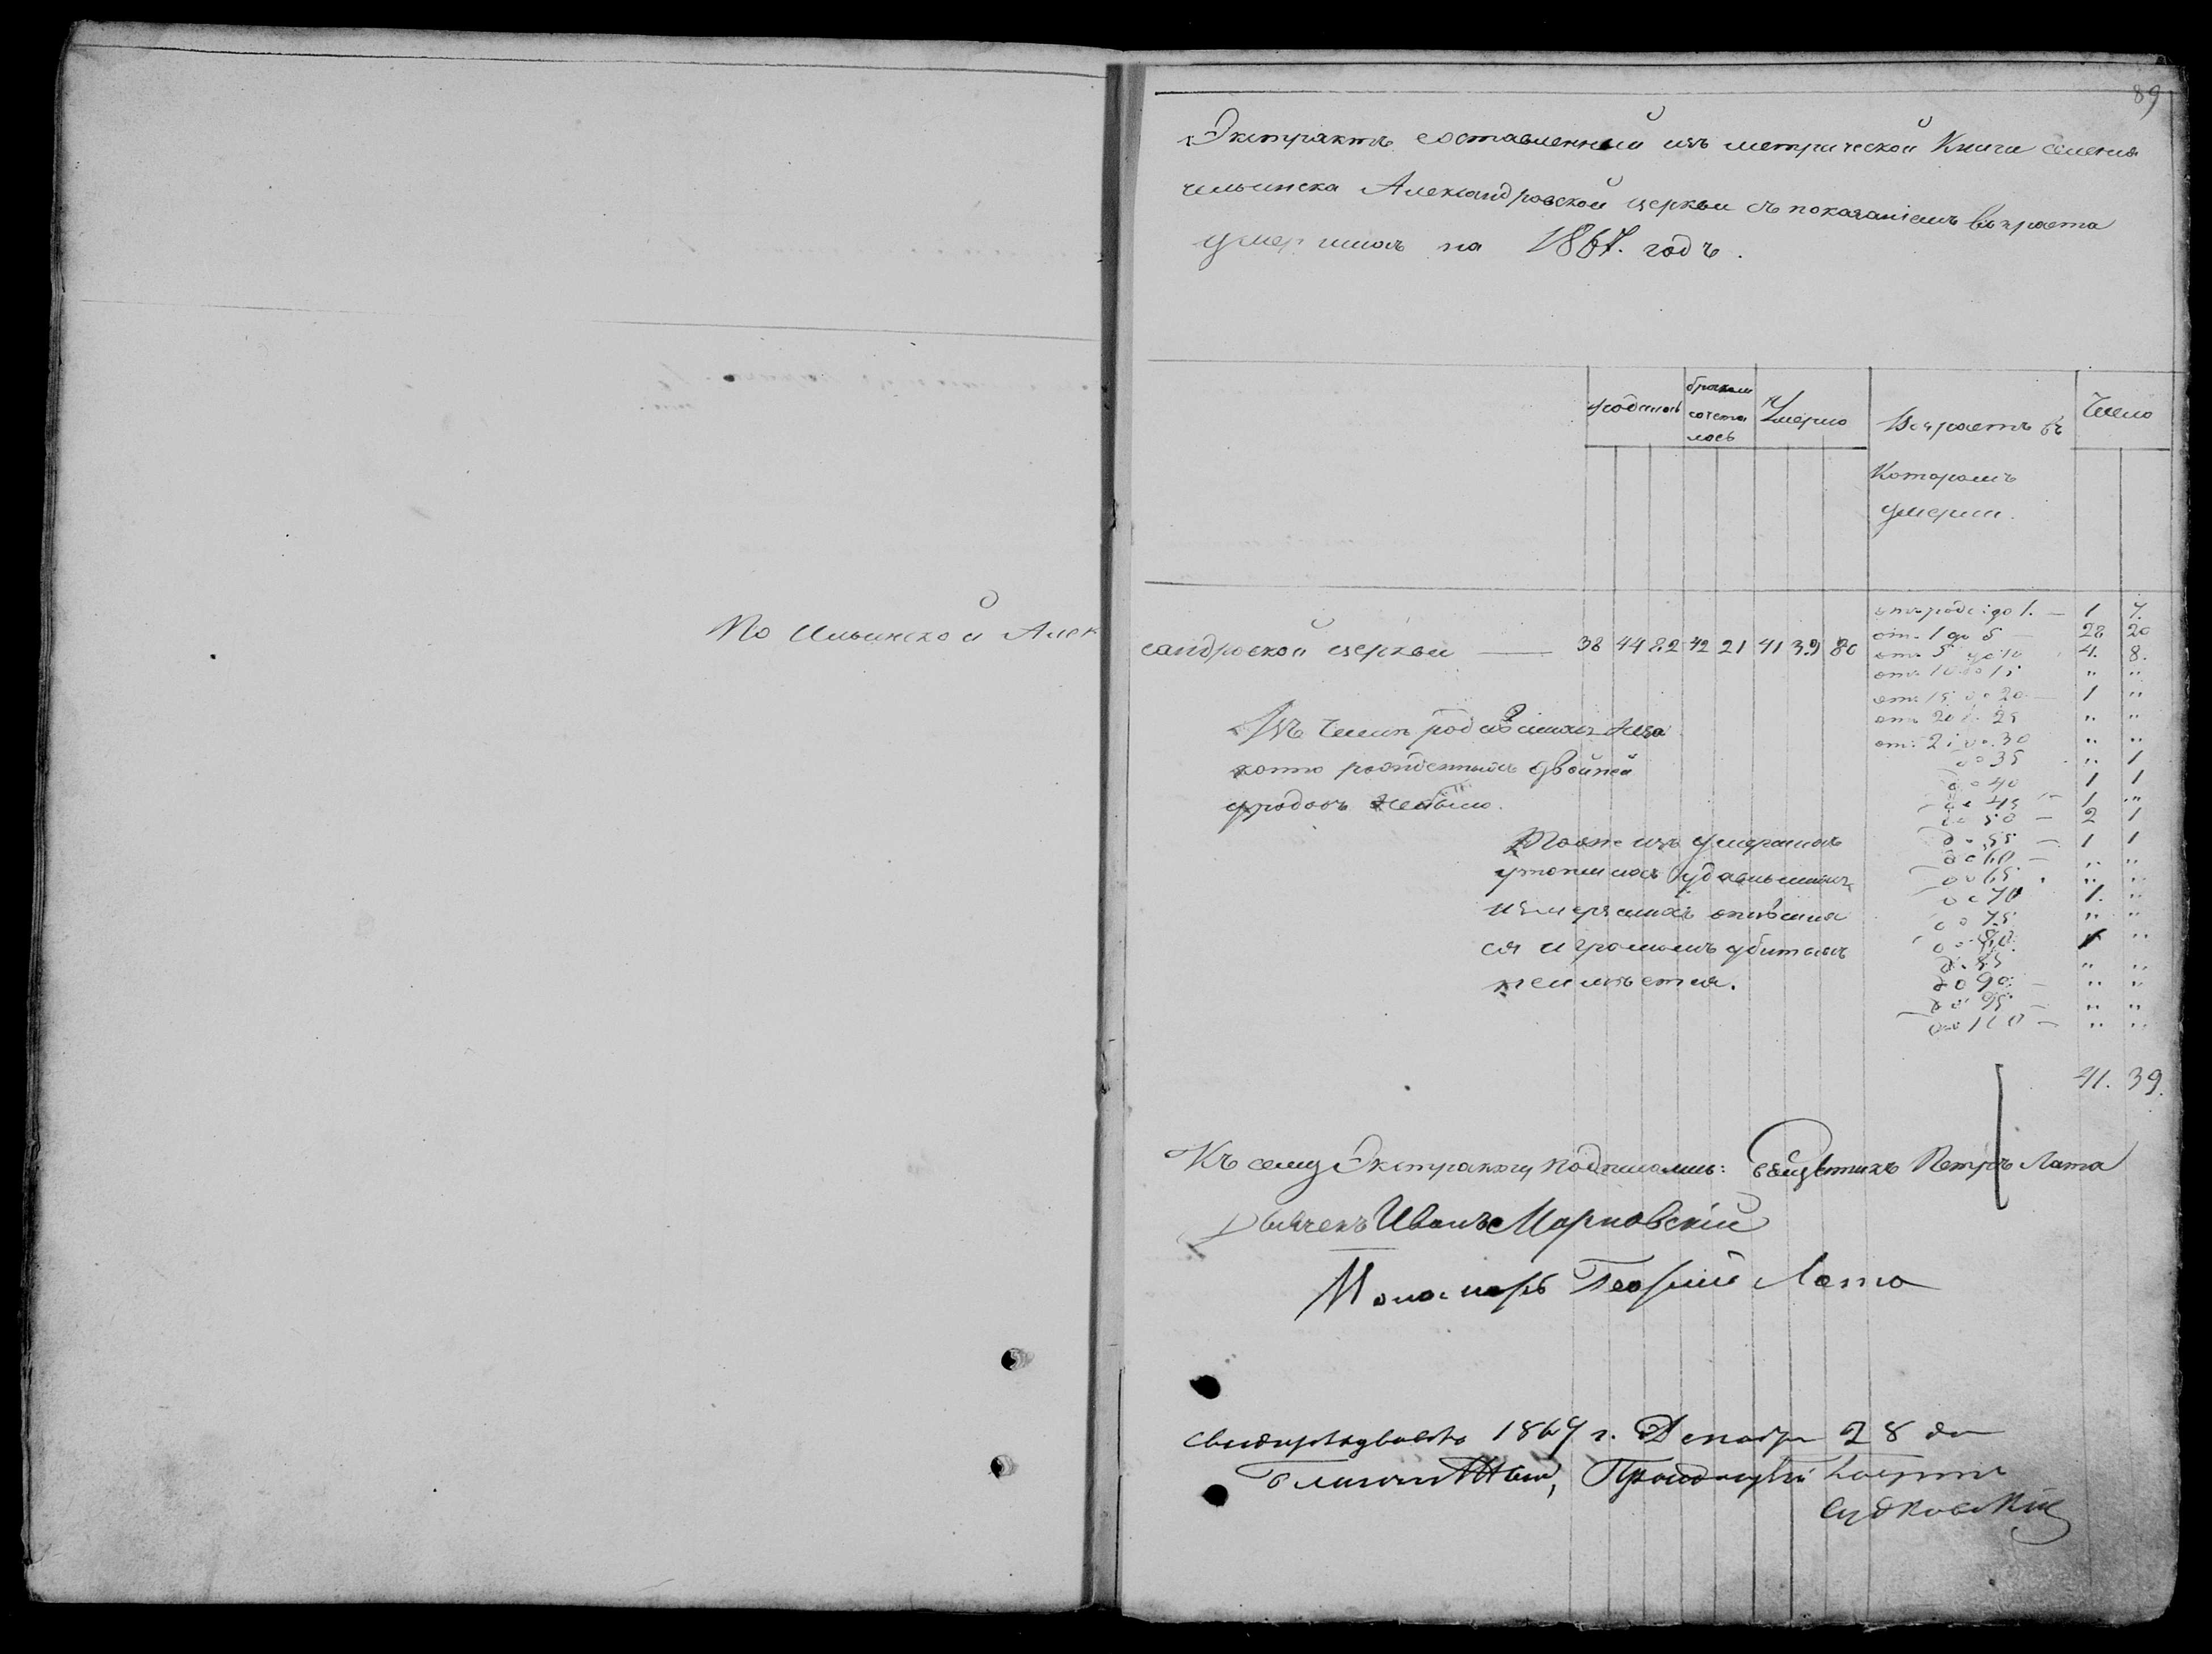 89
Экстрактъ составленный изъ метрической Книги селенія
Ильинска Александровской церкви съ показаніемъ возраста
умершихъ на 1867. годъ.
родилось
бракомъ сочета лось
Умерло
Возрастъ въ Которомъ умерли.
Число
По Ильинской Алек
сандровской церкви — 38 44 82 42 21 41 39 80
отъ рожд: до 1. — 1 7.
от. 1 до 5 — 28 20
от. 5 до 10 4. 8.
от. 10 до 15 " "
от. 15 до 20 — 1 "
от. 20 до 25 " "
от. 25 до 30 " "
до 35 " 1
до 40 1 1
до 45 — 1 "
до 50 — 2 1
до 55 — 1 1
до 60 — " "
до 65 " "
до 70 1. "
до 75 " "
до 80 1 "
до 85 " "
до 90 — " "
до 95 — " "
до 100 — " "
41. 39.
Изъ числа родившихся неза
конно рожденныхъ двойней
уродовъ небыло.
Тоже изъ умершихъ
утопшихъ удавившихъ
измерзшихъ опивших
ся и громомъ убитыхъ
неимѣется.
Къ сему Экстракту подписались: Священникъ Петръ Лата
Дьячекъ Иванъ Марновскій
Пономарь Георгий Лата
1867 г. Декабря 28 дня
Судковский